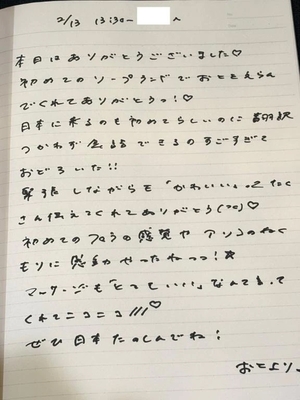 2/13 13:30~ へ
本日はありがとうございました♡
初めてのソープランドでおとをえらん
でくれてありがとうっ!♡
日本に来るのも初めてらしいのに翻訳
つかわず会話できるのすごすぎて
おどろいた!!
緊張しながらも「かわいい」ってたく
さん伝えてくれてありがとう♡
初めてのフロウの感覚や アソコのぬく
もりに感動やったねっっ!☆
マッサージも「とってもいい」なんて言って
くれてニコニコ///♡
ぜひ日本たのしんでね!
おとより